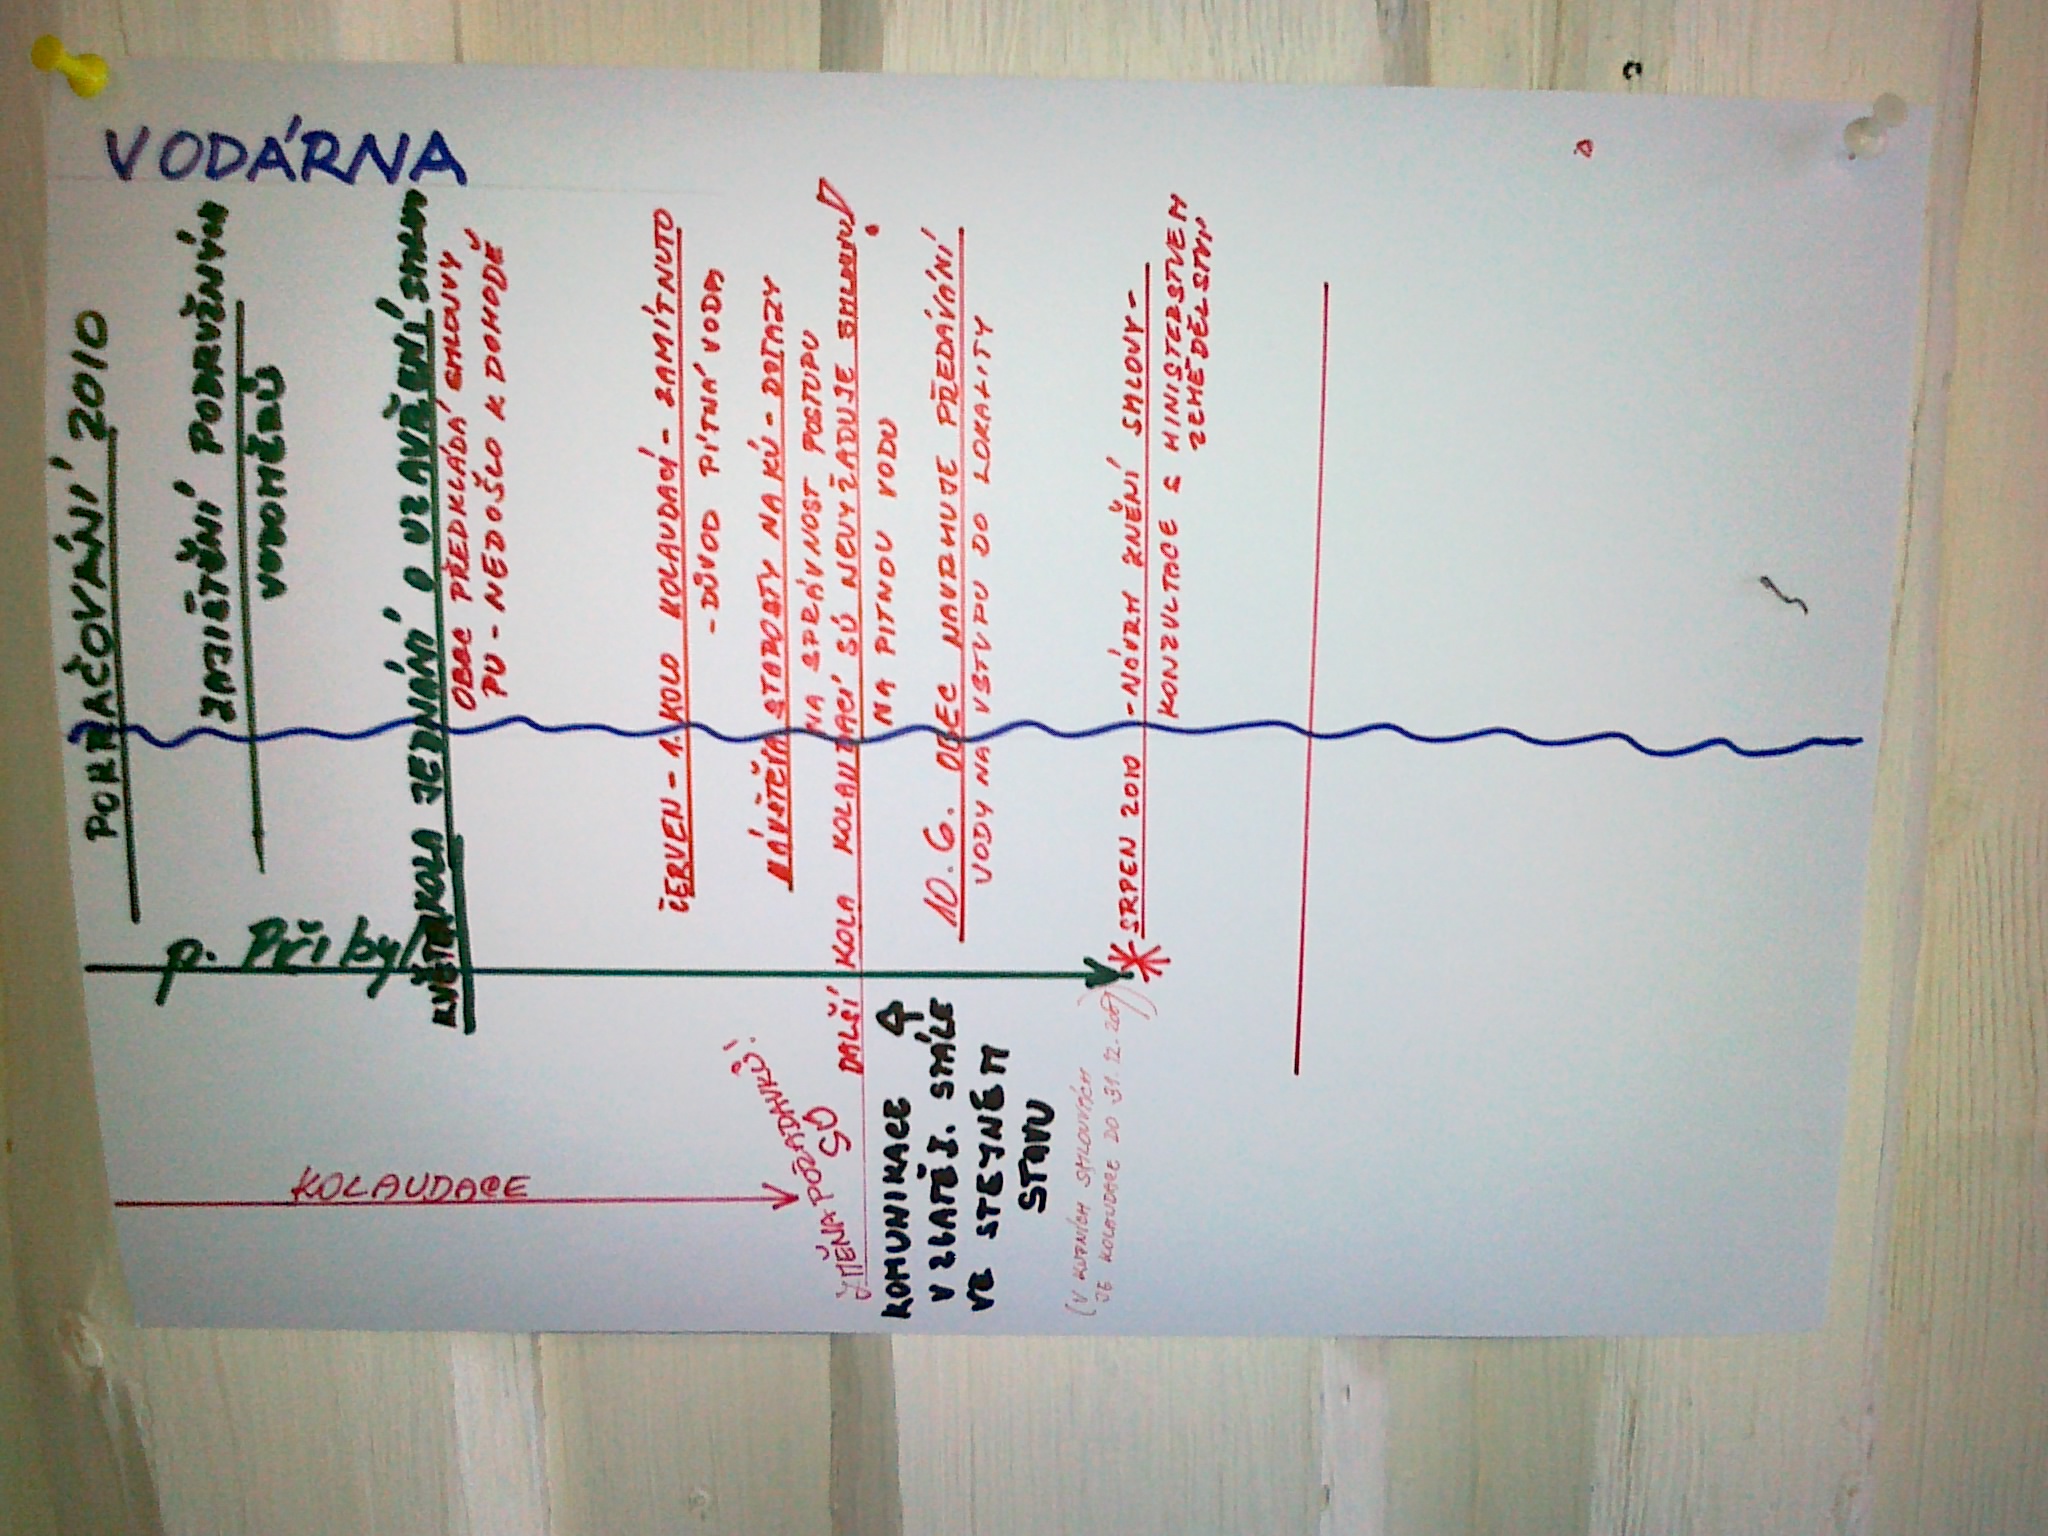 VODÁRNA
POKRAČOVÁNÍ 2010
ZAJIŠTĚNÍ PODRUŽNÝCH
VODOMĚRŮ
p. Přibyl
KVĚTEN KOLA JEDNÁNÍ O UZAVŘENÍ SMLUV
OBEC PŘEDKLÁDÁ SMLOUVY
PU - NEDOŠLO K DOHODĚ
ČERVEN - 1. KOLO KOLAUDACÍ - ZAMÍTNUTO
- DŮVOD PITNÁ VODA
NÁVŠTĚVA STAROSTY NA KÚ - DOTAZY
NA SPRÁVNOST POSTUPU
DALŠÍ KOLA KOLAUDACÍ SÚ NEVYŽADUJE SMLOUVU
NA PITNOU VODU
10. 6. OBEC NAVRHUJE PŘEDÁVÁNÍ
VODY NA VSTUPU DO LOKALITY
SRPEN 2010 - NÁVRH ZNĚNÍ SMLOUVY -
KONZULTACE S MINISTERSTVEM
ZEMĚDĚLSTVÍ
KOLAUDACE
ZMĚNA POŽADAVKŮ!
SÚ
KOMUNIKACE
V ZLATĚ J. STÁLE
VE STEJNÉM
STAVU
(V KUPNÍCH SMLOUVÁCH
JE KOLAUDACE DO 31. 12. 2009)